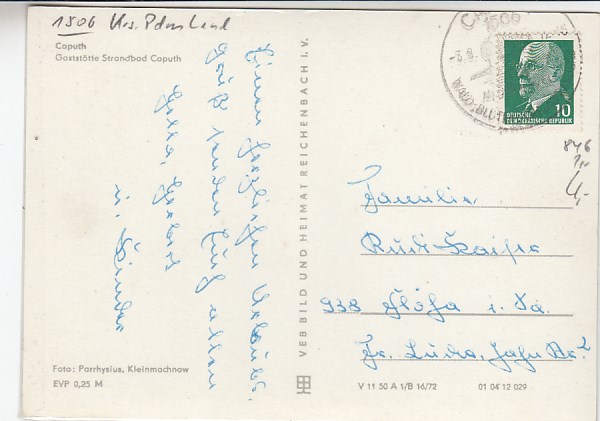 1506 Krs. Pdm Land
Caputh
Gaststätte Strandbad Caputh
Einen herzlichen Urlaubs-
gruß senden Euch allen
Herbert
u. Kinder
Foto: Parrhysius, Kleinmachnow
EVP 0,25 M
VEB BILD UND HEIMAT REICHENBACH I. V.
1506
WALD
10
DEUTSCHE
DEMOKRATISCHE REPUBLIK
846
1,-
4,-
Familie
Rudi Kaiser
938 Flöha i. Sa.
Fr. Ludw. Jahn Str. 2
V 11 50 A 1/B 16/72
01 04 12 029